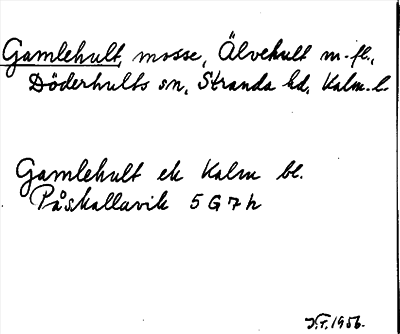 Gamlehult, mosse, Älvehult m. fl.,
Döderhults sn, Stranda hd, Kalm. l.
Gamlehult ek Kalm bl.
Påskallavik 5 G 7 h
1956.